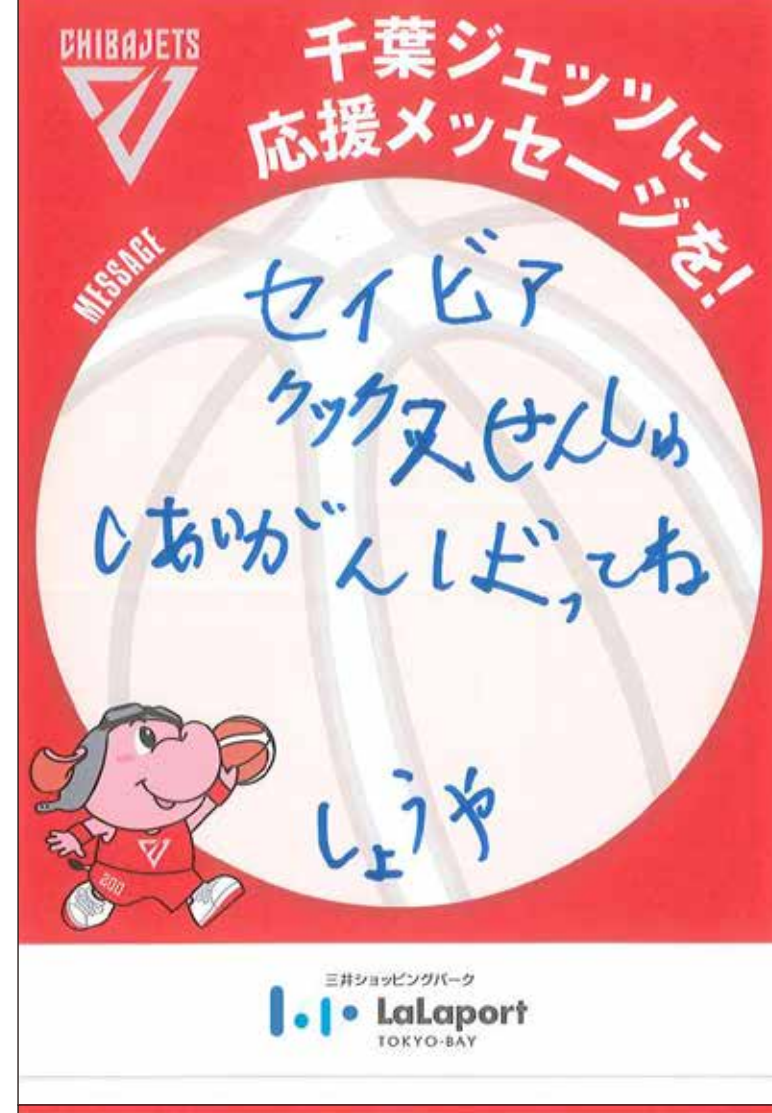 CHIBAJETS
千葉ジェッツに
応援メッセージを!
MESSAGE
セイビア
クックス せんしゅ
しあいがんばってね
しょうや
200
三井ショッピングパーク
LaLaport
TOKYO-BAY